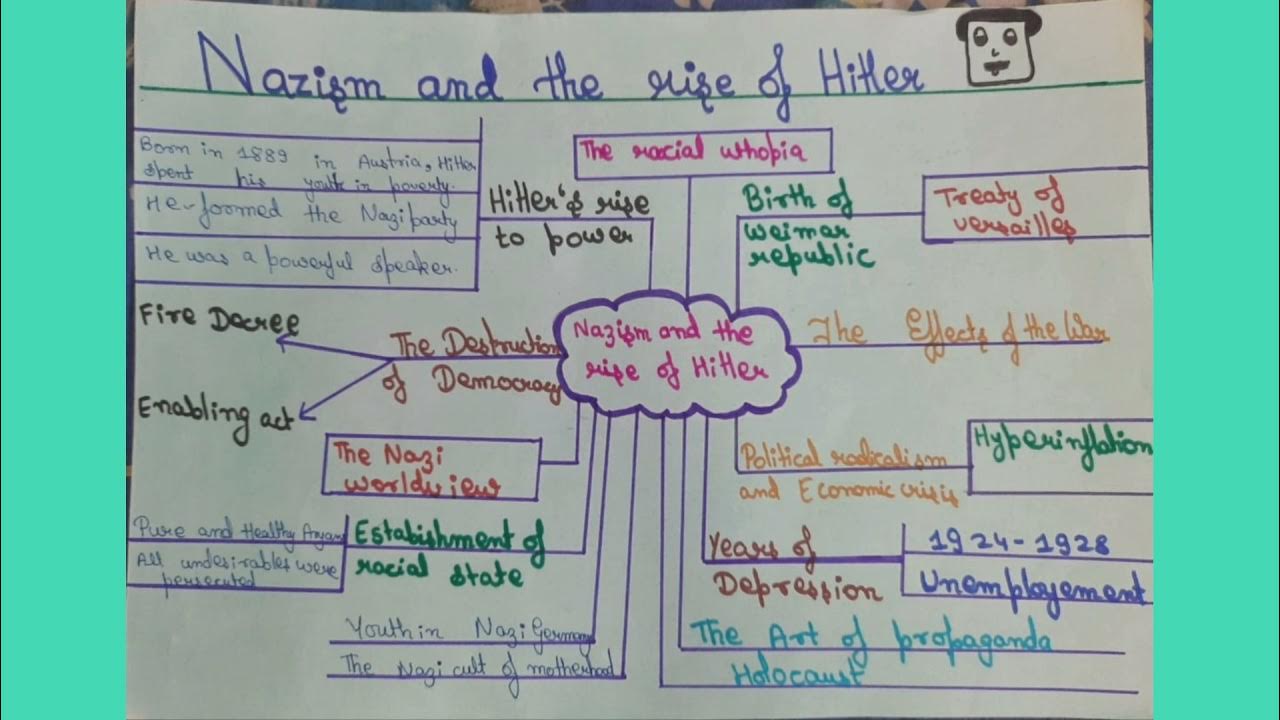 Nazism and the rise of Hitler
Born in 1889 in Austria, Hitler
spent his youth in poverty.
He formed the Nazi party
He was a powerful speaker.
Hitler's rise
to power
The racial uthopia
Birth of
weimar
republic
Treaty of
versailles
Fire Decree
Enabling act
The Destruction
of Democracy
Nazism and the
rise of Hitler
The Effects of the War
The Nazi
worldview
Political radicalism
and Economic crisis
Hyperinflation
Pure and Healthy Aryans
All undesirables were
persecuted
Estabishment of
racial state
Years of
Depression
1924-1928
Unemployement
Youth in Nazi Germany
The Nazi cult of motherhood
The Art of propaganda
Holocaust